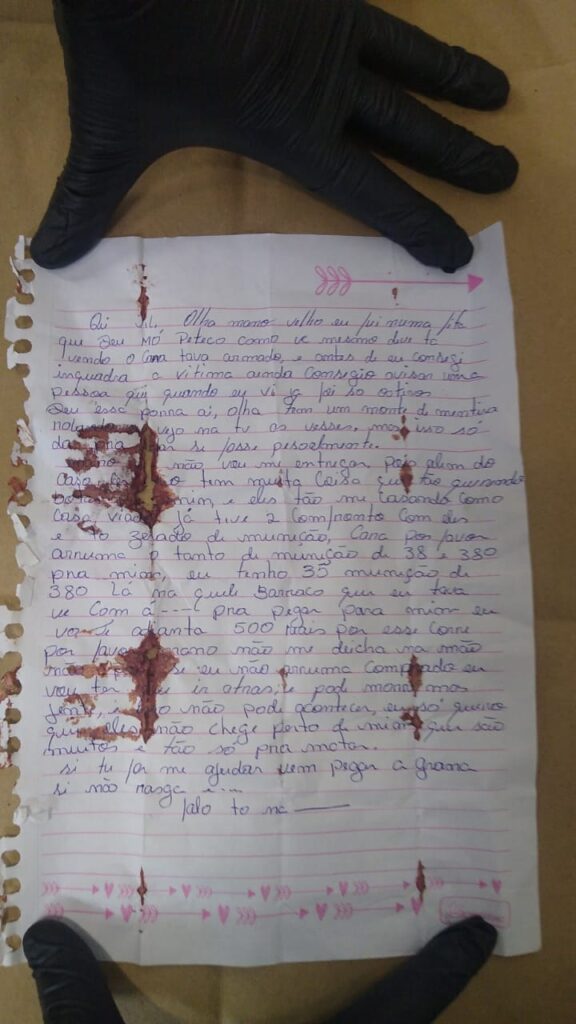 Oi Olha mano velho eu fui numa fita
que Deu MÓ Peteco como vc mesmo deve ta
vendo o Cara tava armado, e antes de eu consegi
inquadra a vitima ainda Consegio avisar uma
pessoa qui quando eu vi ja foi so ostiros.
Deu essa porra ai, olha tem um monte de mentira
vejo na tv as vesses, mas isso só
se fosse pesoalmente.
mano não vou me entregar pois alem do
Caso tem muita Coisa que tão querendo
mim, e eles tão me Casando como
Casa viado já tive 2 Comfronto Com eles
e to zerado de munição, Cara por favor
arruma o tanto de munição de 38 e 380
pra mim, eu tenho 35 munição de
380 Lá na queli Barraco que eu tava
ve Com a---- pra pegar para mim eu
adianta 500 Reais por esse Corre
por favor mano não me deicha na mão
se eu não arruma Comprado eu
vou ter ir atras, e pode morre mas
jente, não pode acontecer, eu só quero
que eles não chege perto de mim, que são
muitos e tão só pra matar.
si tu for me ajudar vem pegar a grana
si não rasga e...
falo to na ———